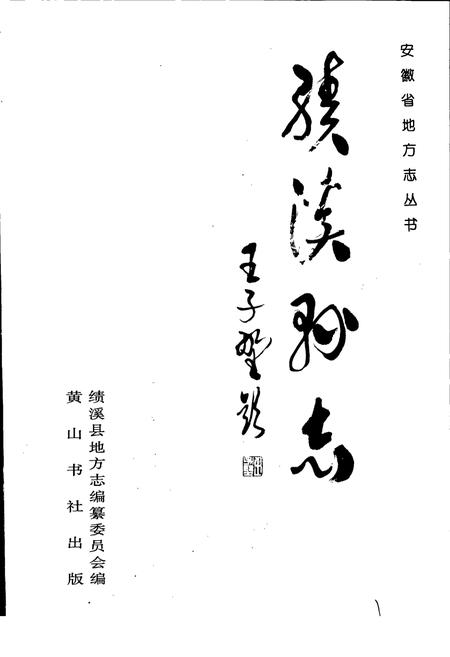 安徽省地方志丛书
绩溪县志
王子野题
绩溪县地方志编纂委员会编
黄山书社出版